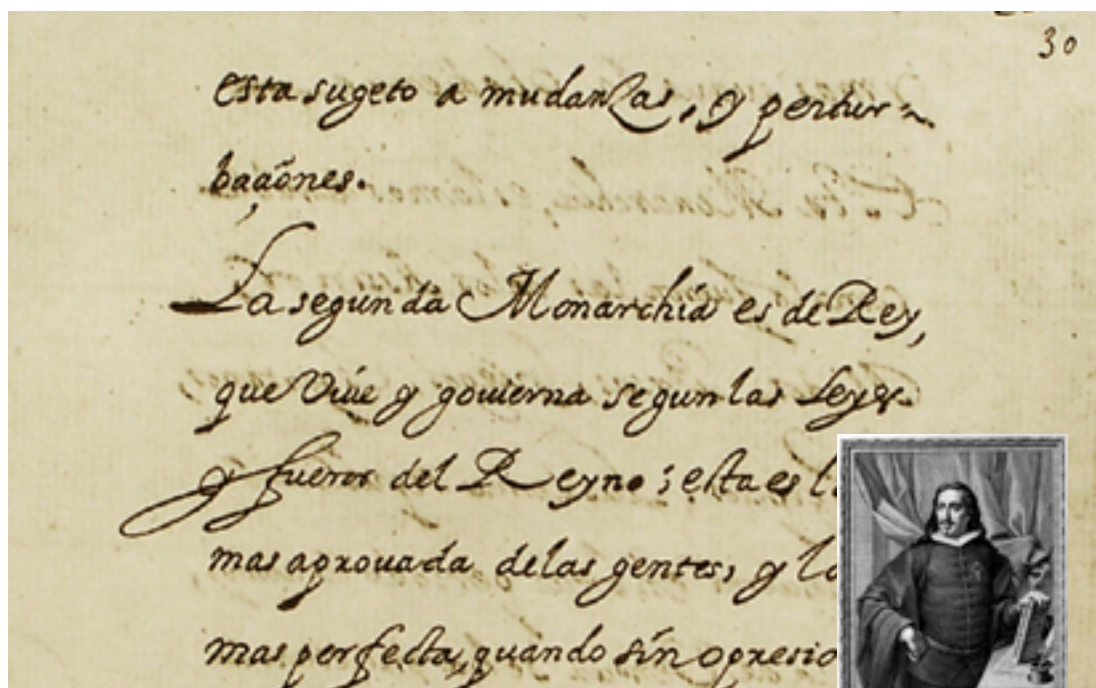 30
esta sugeto a mudanzas, y pertur-
baçiones.
La segunda Monarchia es de Rey,
que viue y gouierna segun las Leyes
y fueros del Reyno; esta es l
mas aprouada de las gentes, y la
mas perfecta, quando sin opresio